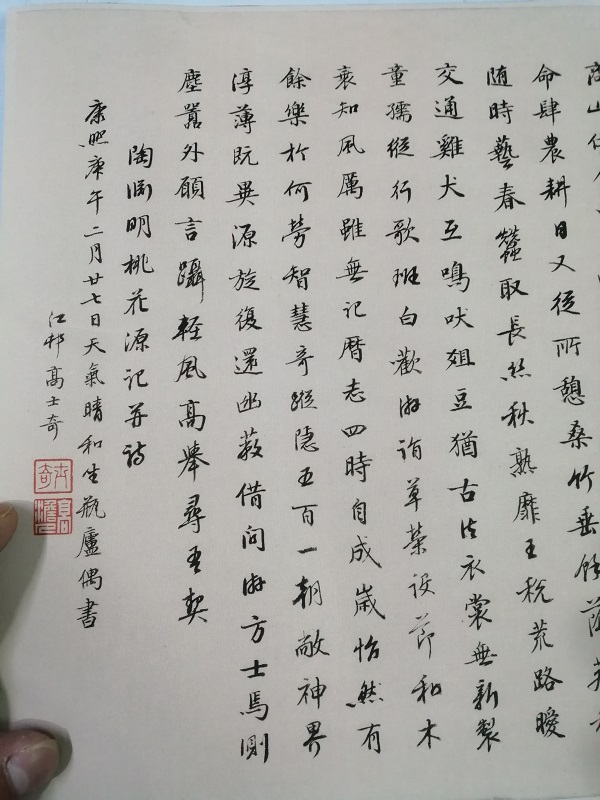 商山伊人
命肆農耕日又從所憩桑竹垂餘蔭菽
随時藝春蠶取長絲秋熟靡王稅荒路曖
交通雞犬互鳴吠俎豆猶古法衣裳無新製
童孺縱行歌班白歡游詣草榮設節和木
衰知風厲雖無記曆志四時自成歲怡然有
餘樂於何勞智慧奇蹤隱五百一朝敞神界
淳薄既異源旋復還幽蔽借問游方士焉測
塵囂外願言躡輕風高舉尋吾契
陶淵明桃花源記并詩
康熙庚午二月廿七日天氣晴和坐瓶廬偶書
江邨高士奇
士奇